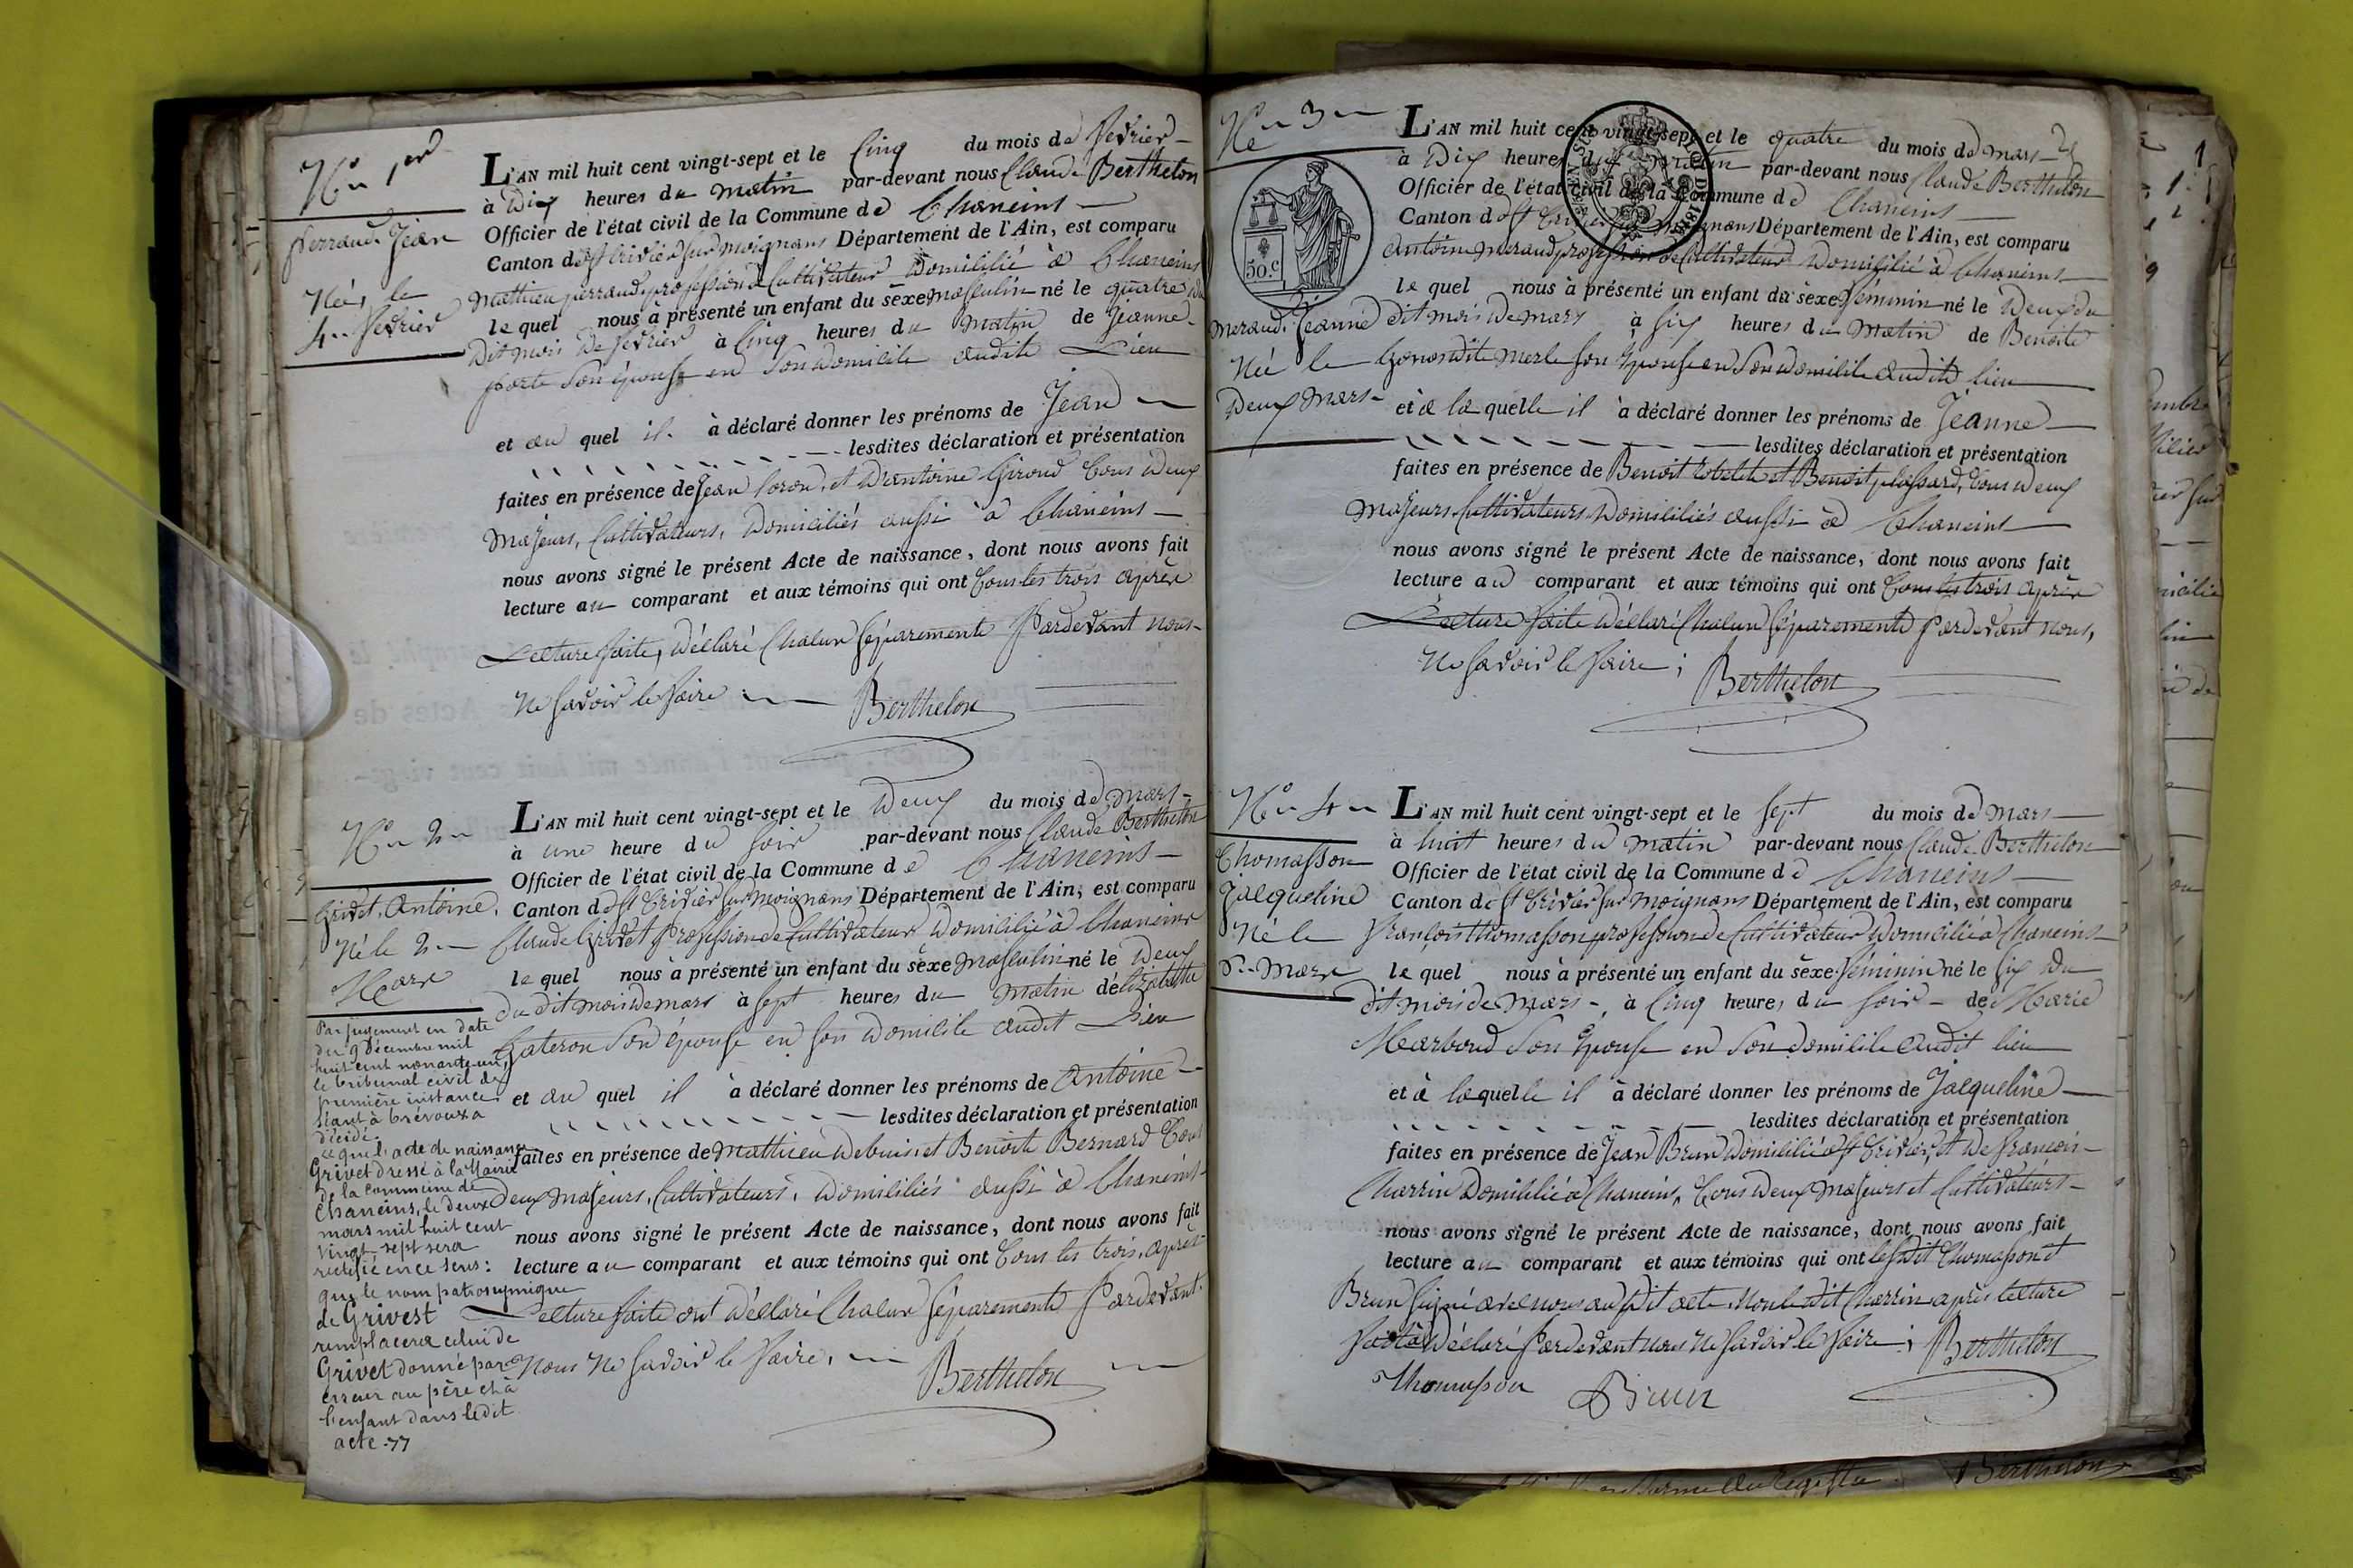 No 1er
L'AN mil huit cent vingt-sept et le Cinq du mois de fevrier
à Dix heures du matin par-devant nous Claude Berthelon
Officier de l'état civil de la Commune de Chaneins
Canton de St trivier sur moignans Département de l'Ain, est comparu
perraud. Jean
Né, le
4.. fevrier
mathieu perraud, profession de Cultivateur Domicilié à Chaneins
le quel nous à présenté un enfant du sèxe masculin né le quatre du
Dit mois De fevrier à Cinq heures du matin de Jeanne
porte Son épouse en Son Domicile audit Lieu
et au quel il à déclaré donner les prénoms de Jean
lesdites déclaration et présentation
faites en présence de Jean loron, et D'antoine Giroud tous Deux
Majeurs, Cultivateurs, Domiciliés aussi à Chaneins
nous avons signé le présent Acte de naissance, dont nous avons fait
lecture au comparant et aux témoins qui ont tous les trois après
Lecture faite, Déclaré Chacun séparément Pardevant nous
Ne savoir le faire Berthelon
No 2
L'AN mil huit cent vingt-sept et le Deux du mois de mars
à une heure du soir par-devant nous Claude Berthelon
Officier de l'état civil de la Commune de Chaneins
Canton de St trivier sur moignans Département de l'Ain, est comparu
Grivet. Antoine.
Né le 2
Mars
Claude Grivet Profession de Cultivateur Domicilié à Chaneins
le quel nous à présenté un enfant du sèxe masculin né le Deux
du dit mois de mars à sept heures du matin de
Gateron Son épouse en son Domicile audit Lieu
et au quel il à déclaré donner les prénoms de Antoine
lesdites déclaration et présentation
faites en présence de Mathieu et Benoite Bernard tous
Deux majeurs, Cultivateurs, Domiciliés aussi à Chaneins
nous avons signé le présent Acte de naissance, dont nous avons fait
lecture au comparant et aux témoins qui ont tous les trois, après
Lecture faite ont Déclaré Chacun séparément Pardevant
Nous Ne savoir le faire, Berthelon
Par jugement en date
du 9 Décembre mil
huit cent nonante un,
le tribunal civil de
première instance
séant à Trévoux a
décidé:
ce que l'acte de naissance
Grivet dressé à la Mairie
de la commune de
Chaneins, le deux
mars mil huit cent
vingt-sept sera
rectifié en ce sens:
que le nom patronymique
de Grivest
remplacera celui de
Grivet donné par
erreur au père et à
l'enfant dans ledit
acte. "
No 3
L'AN mil huit cent vingt-sept et le quatre du mois de mars
à Dix heures du matin par-devant nous Claude Berthelon
Officier de l'état civil de la Commune de Chaneins
Canton de St trivier sur moignans Département de l'Ain, est comparu
50.c
Antoine meraud profession de Cultivateur Domicilié à Chaneins
le quel nous à présenté un enfant du sèxe féminin né le Deux du
meraud. Jeanne
Née le
Deux mars
dit mois de mars à six heures du matin de Benoite
dite merle son épouse en Son Domicile audit lieu
et à la quelle il à déclaré donner les prénoms de Jeanne
lesdites déclaration et présentation
faites en présence de Benoit et Benoit plassard, tous Deux
Majeurs Cultivateurs Domiciliés aussi à Chaneins
nous avons signé le présent Acte de naissance, dont nous avons fait
lecture au comparant et aux témoins qui ont tous les trois après
Lecture faite Déclaré Chacun séparément Pardevant nous,
Ne savoir le faire; Berthelon
No 4
L'AN mil huit cent vingt-sept et le sept du mois de mars
à huit heures du matin par-devant nous Claude Berthelon
Officier de l'état civil de la Commune de Chaneins
Canton de St trivier sur Moignans Département de l'Ain, est comparu
Thomasson
Jacqueline
Né le
6.. Mars
françois thomasson profession de Cultivateur Domicilié à Chaneins
le quel nous à présenté un enfant du sèxe féminin né le six Du
dit mois de mars, à Cinq heures du soir de Marie
Marboud Son épouse en Son domicile audit lieu
et à laquelle il à déclaré donner les prénoms de Jacqueline
lesdites déclaration et présentation
faites en présence de Jean Brun Domicilié à St trivier, et De françois
Charrin Domicilié à Chaneins, tous Deux Majeurs et Cultivateurs
nous avons signé le présent Acte de naissance, dont nous avons fait
lecture au comparant et aux témoins qui ont lesdit Thomasson et
Brun signé avec nous au dit acte, non ledit Charrin après lecture
faite Déclaré Pardevant nous Ne savoir le faire; Berthelon
Thomasson Brun
Berthelon